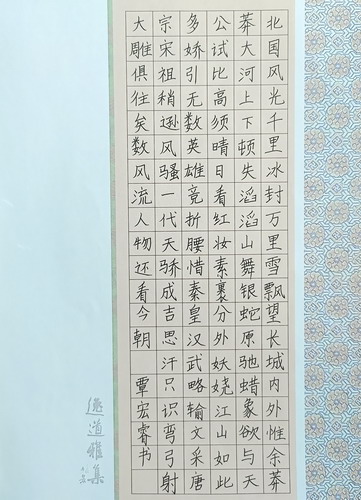 北国风光千里冰封万里雪飘望长城内外惟余莽
莽大河上下顿失滔滔山舞银蛇原驰蜡象欲与天
公试比高须晴日看红妆素裹分外妖娆江山如此
多娇引无数英雄竞折腰惜秦皇汉武略输文采唐
宗宋祖稍逊风骚一代天骄成吉思汗只识弯弓射
大雕俱往矣数风流人物还看今朝 覃宏睿书
道雅集